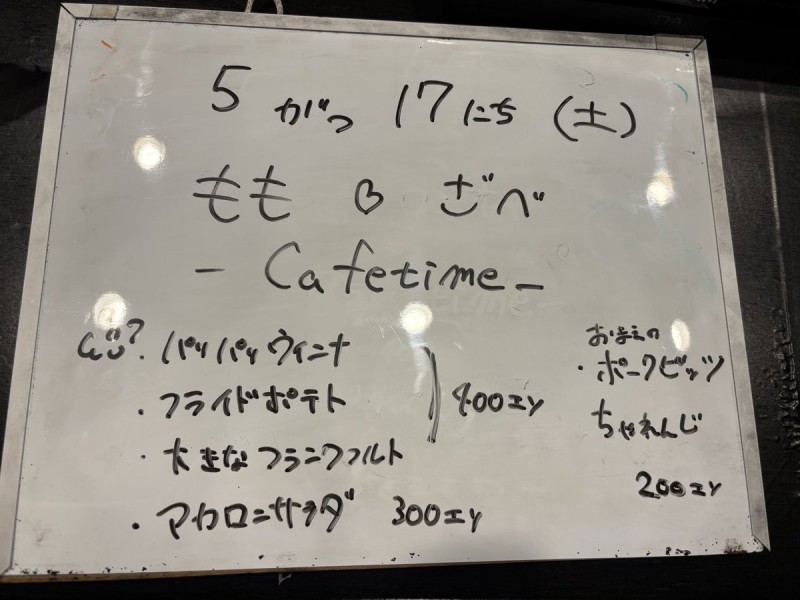 5 がつ 17にち (土)
もも ♡ ごべ
- Cafetime -
・パリパリウィンナ
・フライドポテト
・大きなフランクフルト
400エン
・マカロニサラダ 300エン
おまえの
・ポークビッツ
ちゃれんじ
200エン